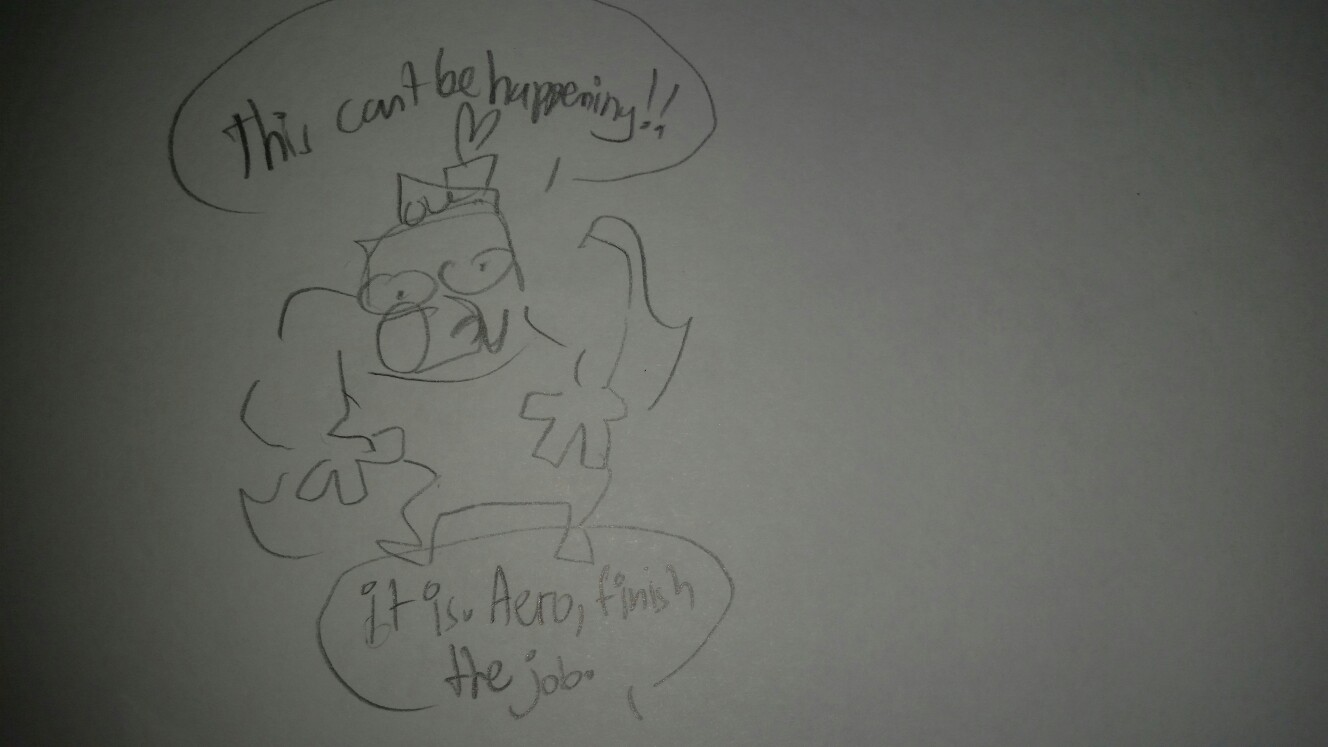 This can't be happening!!
Love
it is. Aero, finish
the job.